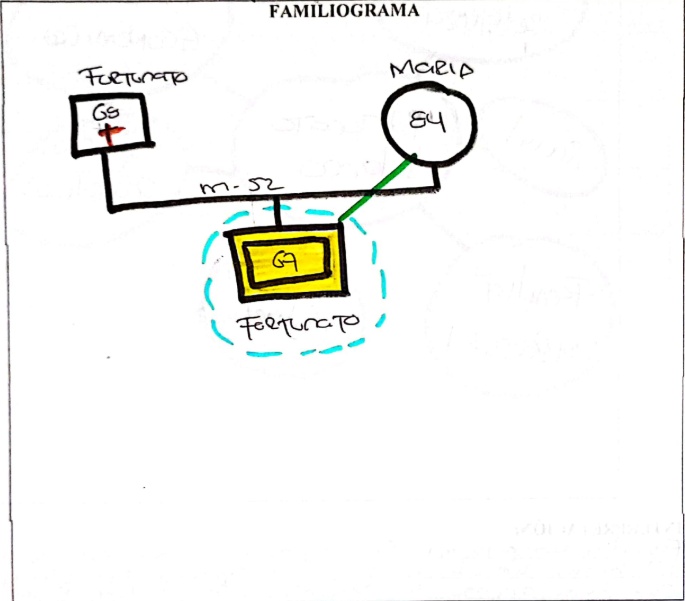 FAMILIOGRAMA
FORTUNATO
MARIA
68
84
m-52
69
FORTUNATO